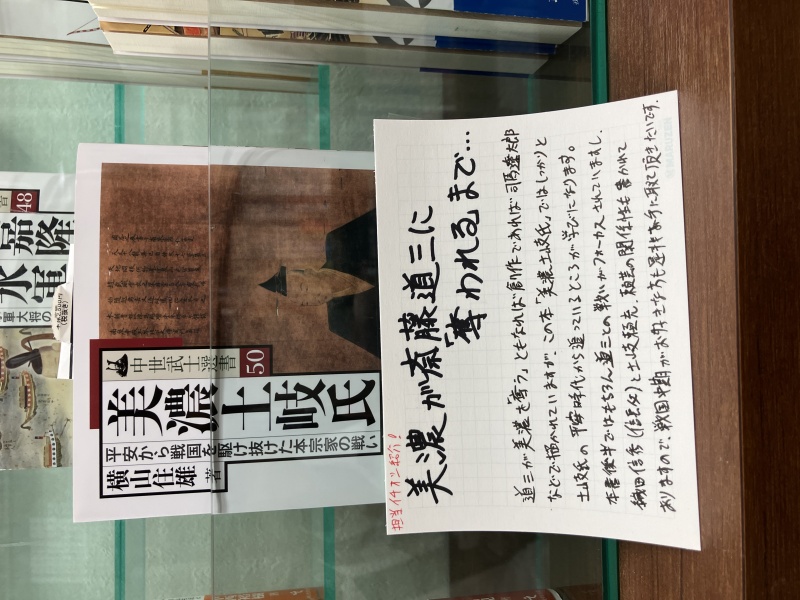 担当イチオシ紹介!
美濃が斎藤道三に
奪われるまで…
道三が美濃を奪う、ともなれば創作であれば司馬遼太郎
などで描かれていますが、この本「美濃土岐氏」ではしっかりと
土岐氏の平安時代から追っているところが学びになります。
本書後半ではもちろん道三との戦いがフォーカスされていますし、
織田信秀(信長父)と土岐頼充、頼芸の関係性も書かれて
おりますので、戦国中期がお好きな方も是非お手に取って頂きたいです。
中世武士選書
50
美濃土岐氏
平安から戦国を駆け抜けた本宗家の戦い
横山住雄 著
48
嘉隆
水軍
軍大将の